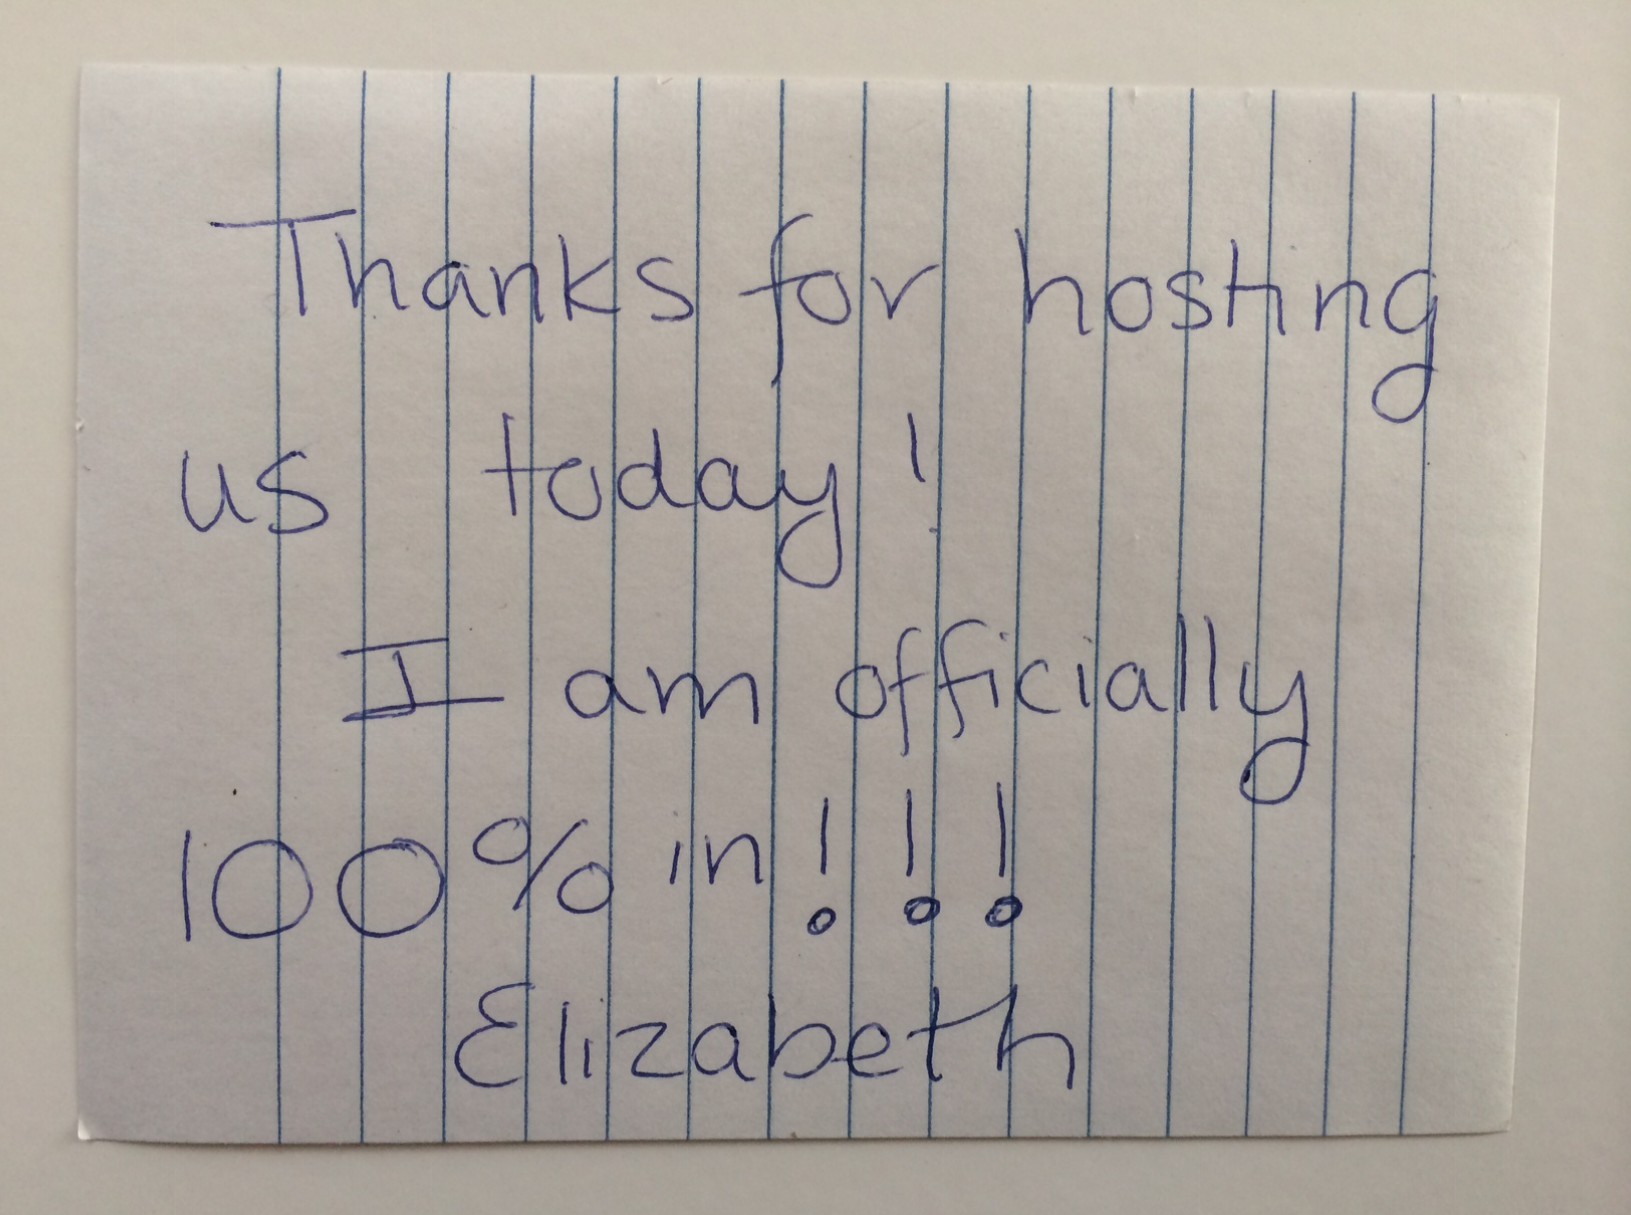 Thanks for hosting
us today!
I am officially
100% in!!!
Elizabeth